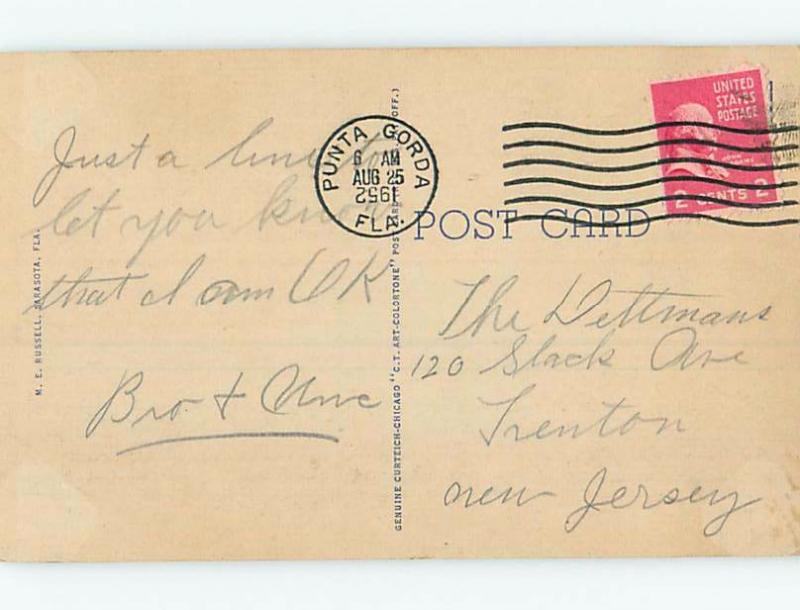 Just a line to
let you know
that I am OK
Bro + Unc
M. E. RUSSELL, SARASOTA, FLA.
GENUINE CURTEICH-CHICAGO "C.T. ART-COLORTONE" POST CARD OFF.)
PUNTA GORDA
6 AM
AUG 25
1952
FLA.
UNITED
STATES
POSTAGE
2 CENTS 2
POST CARD
The Dettmans
120 Slack Ave
Trenton
new Jersey